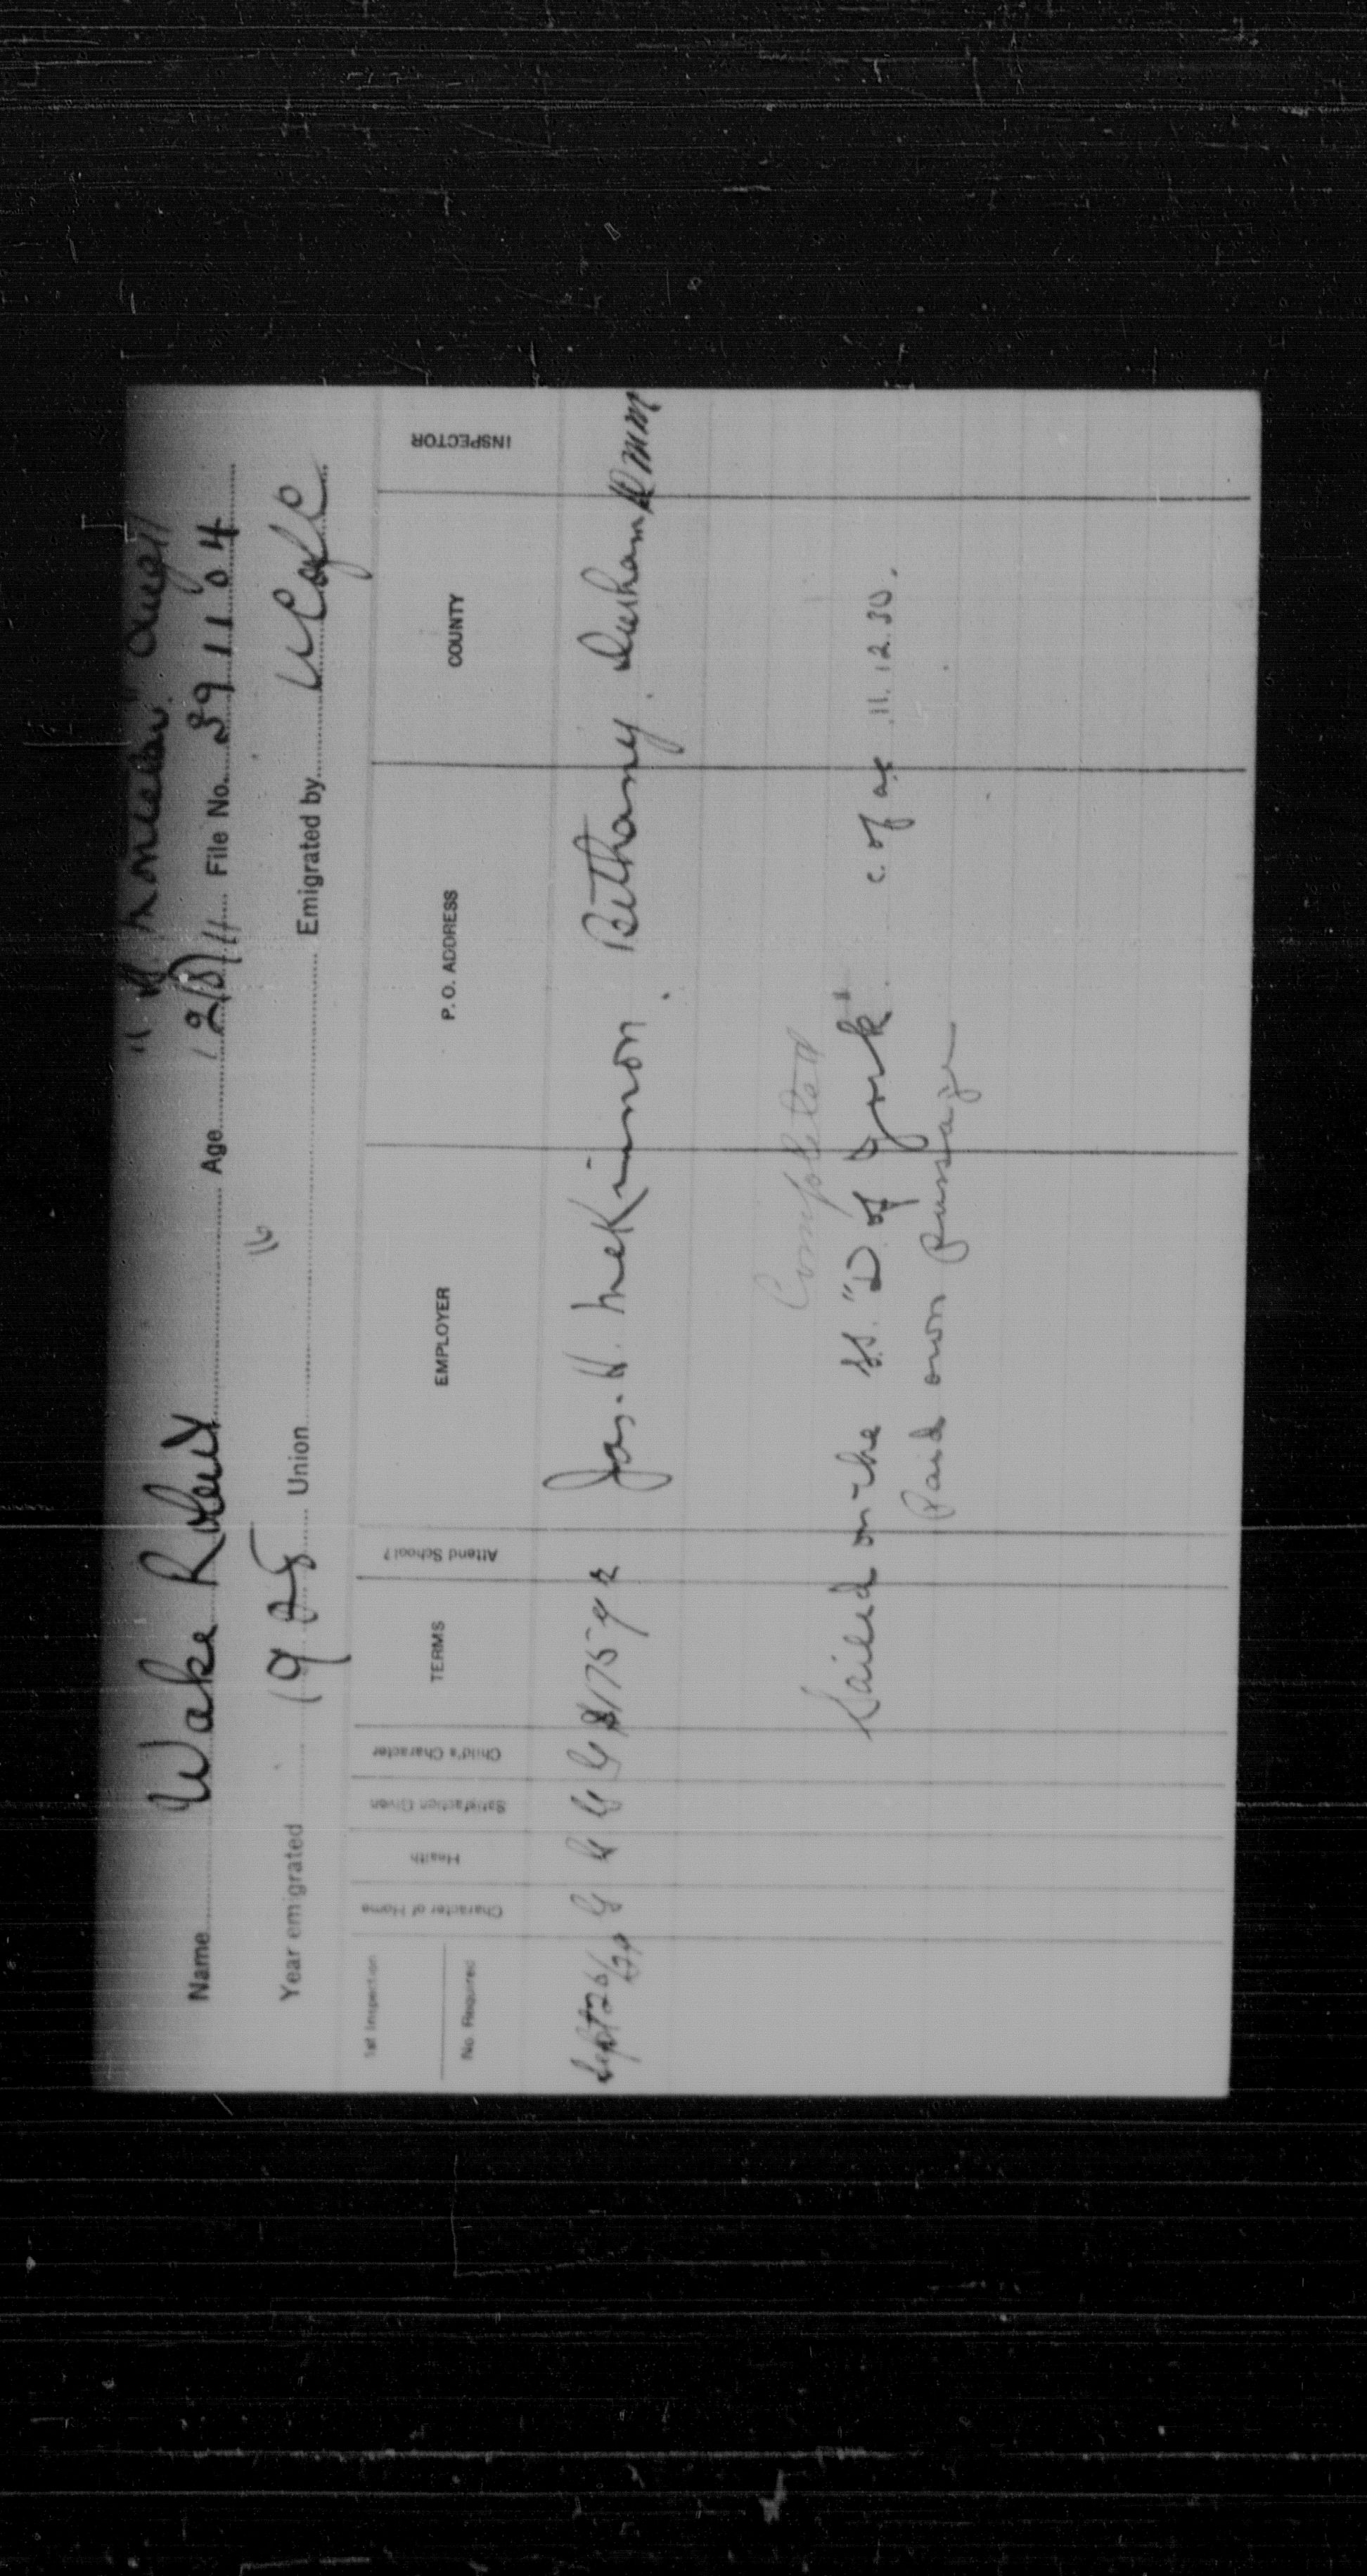 Name Wake Robert Age File No. 391104
Year emigrated 1925 Union 16 Emigrated by
1st Inspection
No. Required
Character of Home
Health
Satisfaction Given
Child's Character
TERMS
Attend School?
EMPLOYER
P. O. ADDRESS
COUNTY
INSPECTOR
Sept 26/30 G G G G $175 yr Jas. H. McKinnon. Bethany. Durham
Completed
Sailed on the S.S. "D of York". c. of a. 11.12.30.
Paid own passage